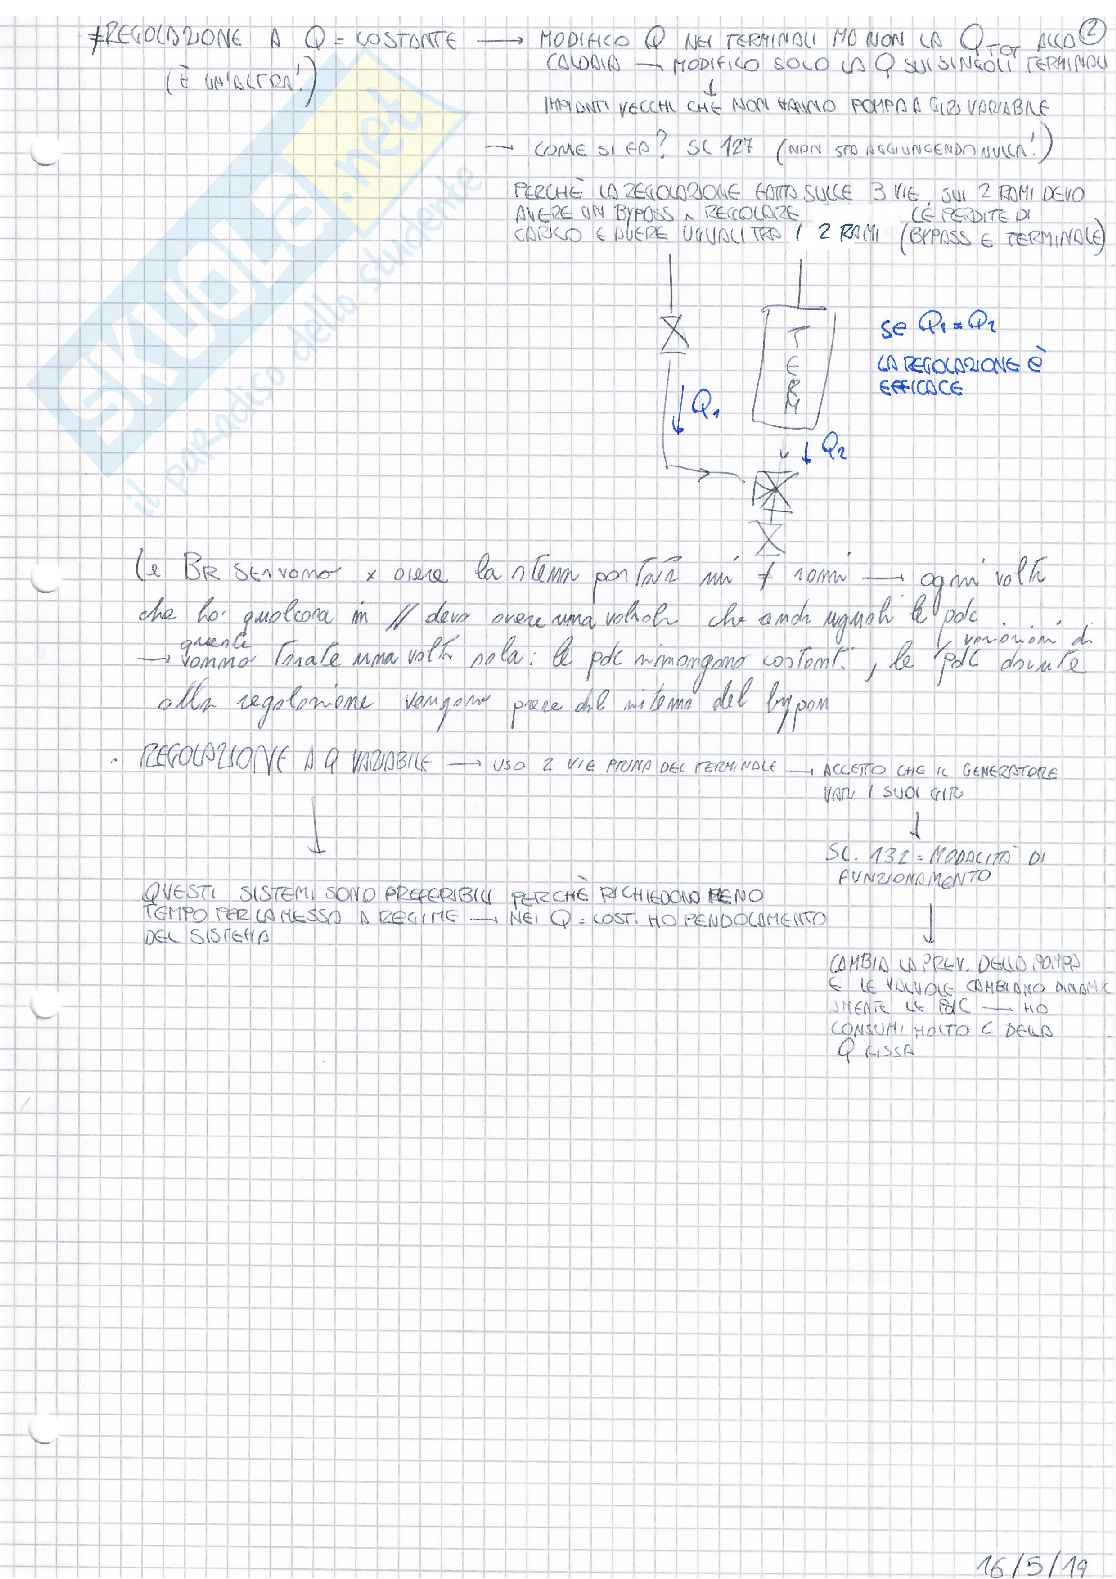 ②
≠ REGOLAZIONE A Q = COSTANTE → MODIFICO Q NEI TERMINALI MA NON LA QTOT ALLA
(È UN'ALTRA!)
CALDAIA → MODIFICO SOLO LA Q SUI SINGOLI TERMINALI
↓
IMPIANTI VECCHI CHE NON HANNO POMPA A GIRI VARIABILE
→ COME SI FA? SC 127 (NON STO AGGIUNGENDO NULLA!)
PERCHÈ LA REGOLAZIONE FATTA SULLE 3 VIE, SUI 2 RAMI DEVO
AVERE UN BYPASS A REGOLARE (LE PERDITE DI
CARICO E AVERE UGUALI TRA I 2 RAMI (BYPASS E TERMINALE)
TERM
SE Q1 = Q2
LA REGOLAZIONE È
EFFICACE
↓ Q1
↓ Q2
Le BR servono x avere la stessa portata nei ≠ rami → ogni volta
che ho qualcosa in // devo avere una valvola che renda uguali le pdc
→ queste vanno tarate una volta sola: le pdc rimangono costanti, le variazioni di pdc dovute
alla regolazione vengono prese dal sistema del bypass
· REGOLAZIONE A Q VARIABILE → USO 2 VIE PRIMA DEL TERMINALE → ACCETTO CHE IL GENERATORE
VARI I SUOI GIRI
↓
SC. 132 = MODALITÀ DI
FUNZIONAMENTO
QUESTI SISTEMI SONO PREFERIBILI PERCHÈ RICHIEDONO MENO
TEMPO PER LA MESSA A REGIME → NEI Q = COST. HO PENDOLAMENTO
DEL SISTEMA
CAMBIA LA PREV. DELLA POMPA
E LE VALVOLE CAMBIANO DINAMIC
AMENTE LE PDC → HO
CONSUMI MOLTO < DELLA
Q FISSA
16/5/19
SKUOLA.net
il paradiso dello studente